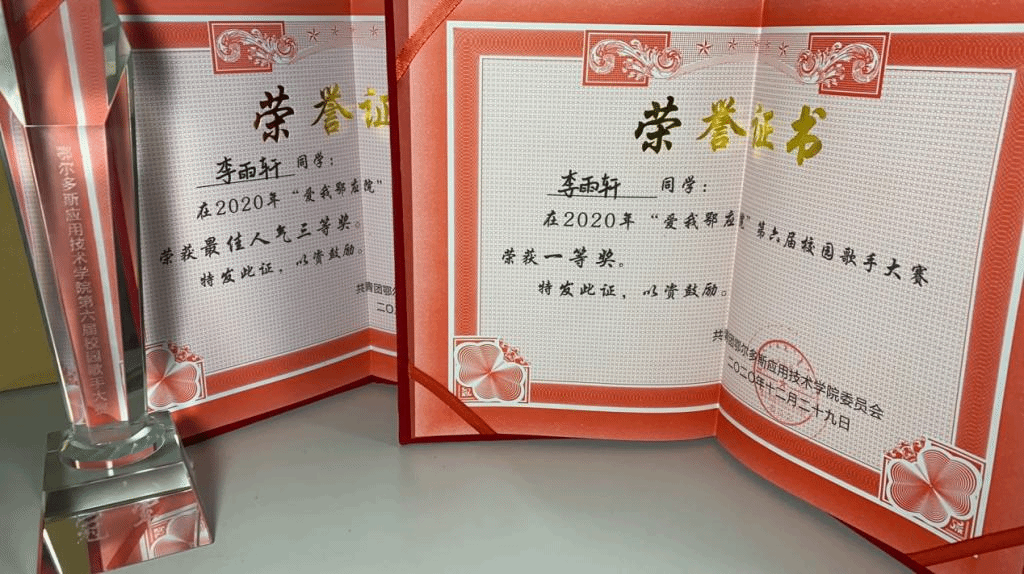 鄂尔多斯应用技术学院第六届校园歌手大
冠 军
荣誉证
李雨轩 同学：
在2020年“爱我鄂应院”
荣获最佳人气三等奖。
特发此证，以资鼓励。
共青团鄂尔
二〇
荣誉证书
李雨轩 同学：
在2020年“爱我鄂应院”第六届校园歌手大赛
荣获一等奖。
特发此证，以资鼓励。
共青团鄂尔多斯应用技术学院委员会
二〇二〇年十二月二十九日